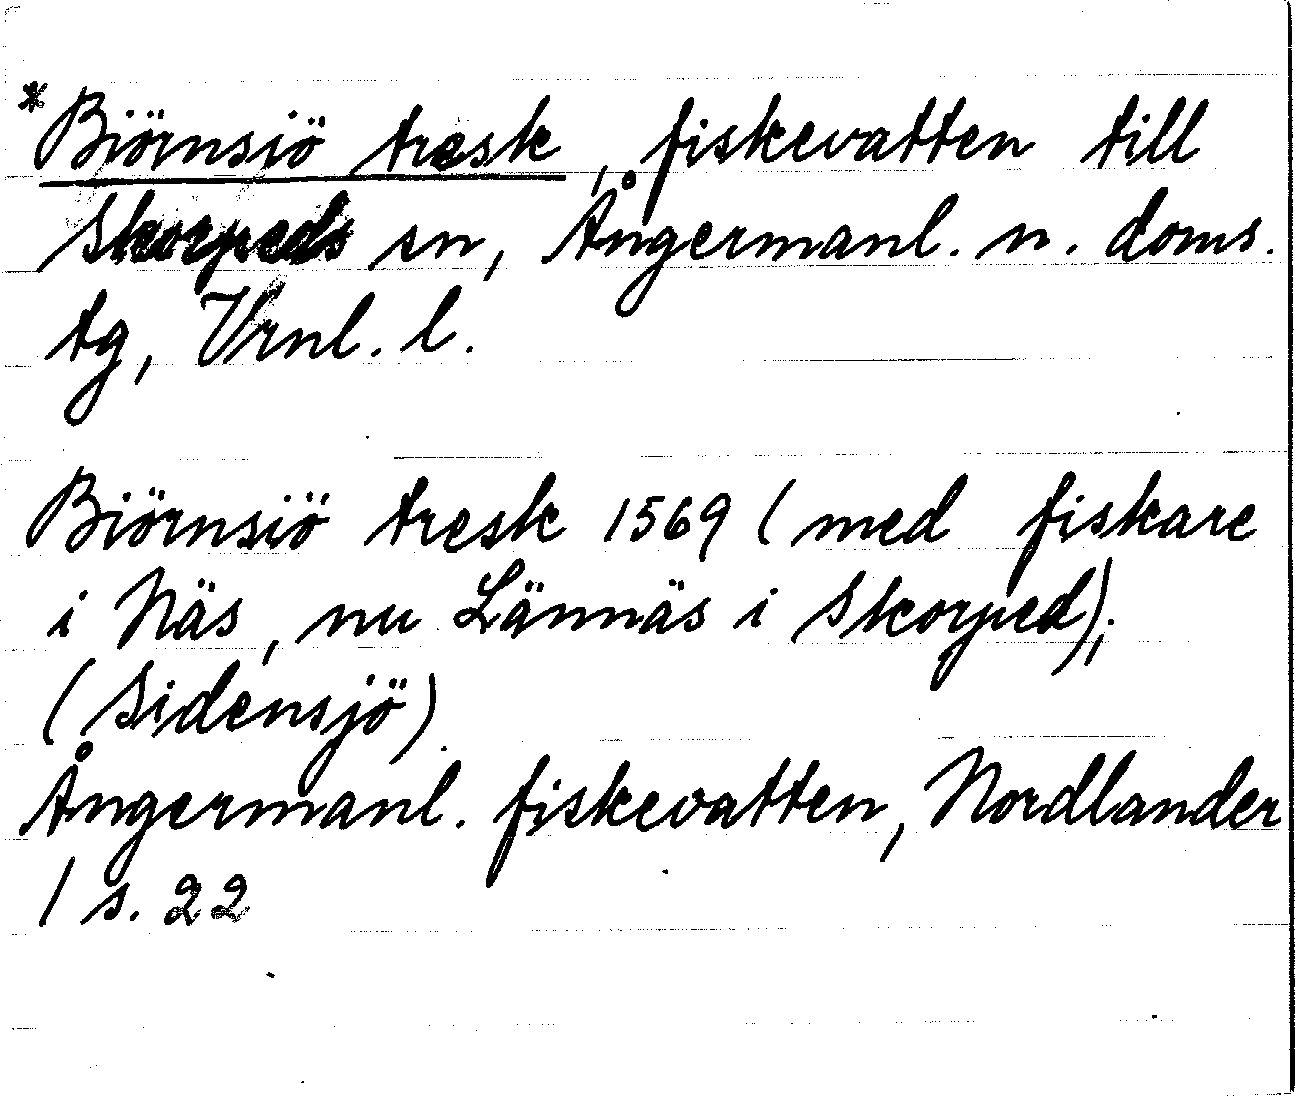 *Biörnsiö tresk, fiskevatten till
Skorpeds sn, Ångermanl. n. doms.
tg, Vrnl. l.
Biörnsiö tresk 1569 (med fiskare
i Näs, nu Lännäs i Skorped);
(Sidensjö).
Ångermanl. fiskevatten, Nordlander
1 s. 22